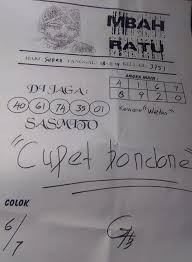 MBAH
RATU
HARI SABTU TANGGAL
DI JAGA:
ANGKA MAIN:
A 1 1 6 7
B 8 9 2 0
40 61 74 35 01
Kawane "Wetan"
SASMITO
"Cupet bondone"
COLOK
6/7